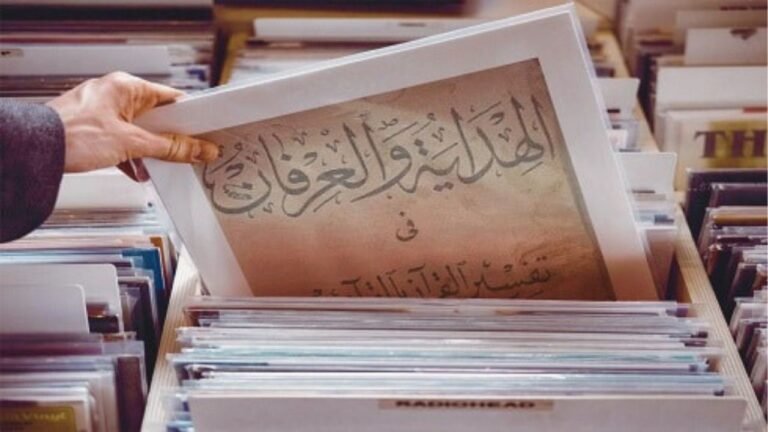 الهداية والعرفان
في
تفسير القرآن بالقرآن
TH
RADIOHEAD